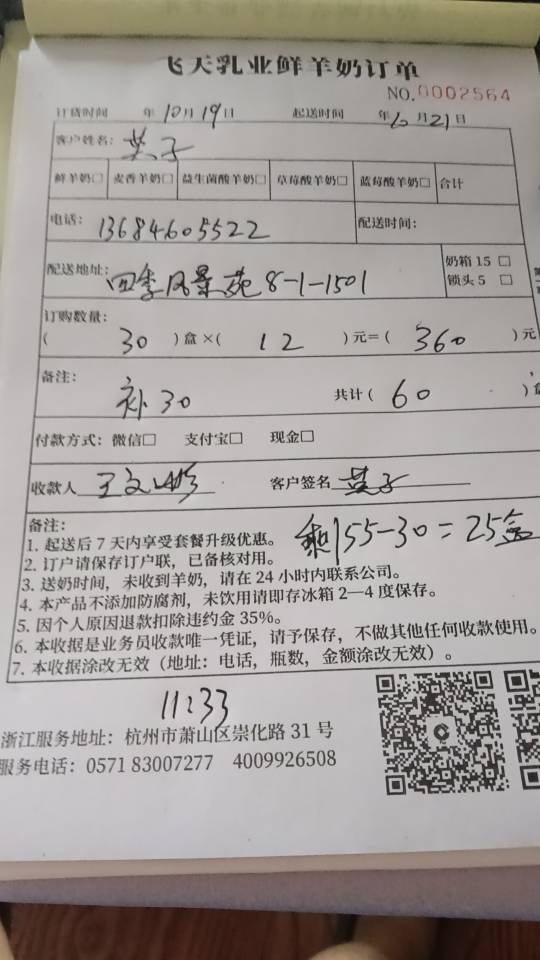 飞天乳业鲜羊奶订单
NO.0002564
订货时间 年10月19日 起送时间 年10月21日
客户姓名：英子
鲜羊奶□ 麦香羊奶□ 益生菌酸羊奶□ 草莓酸羊奶□ 蓝莓酸羊奶□ 合计
电话：13684605522 配送时间：
配送地址：四季风景苑8-1-1501
奶箱 15 □
锁头 5 □
订购数量：
（ 30 ）盒×（ 12 ）元=（ 360 ）元
备注：
补30 共计（ 60 ）
付款方式：微信□ 支付宝□ 现金□
收款人 王文 客户签名 英子
备注：
剩55-30=25盒
1. 起送后 7 天内享受套餐升级优惠。
2. 订户请保存订户联，已备核对用。
3. 送奶时间，未收到羊奶，请在 24 小时内联系公司。
4. 本产品不添加防腐剂，未饮用请即存冰箱 2—4 度保存。
5. 因个人原因退款扣除违约金 35%。
6. 本收据是业务员收款唯一凭证，请予保存，不做其他任何收款使用。
7. 本收据涂改无效（地址：电话，瓶数，金额涂改无效）。
11:33
浙江服务地址：杭州市萧山区崇化路 31 号
服务电话：0571 83007277 4009926508